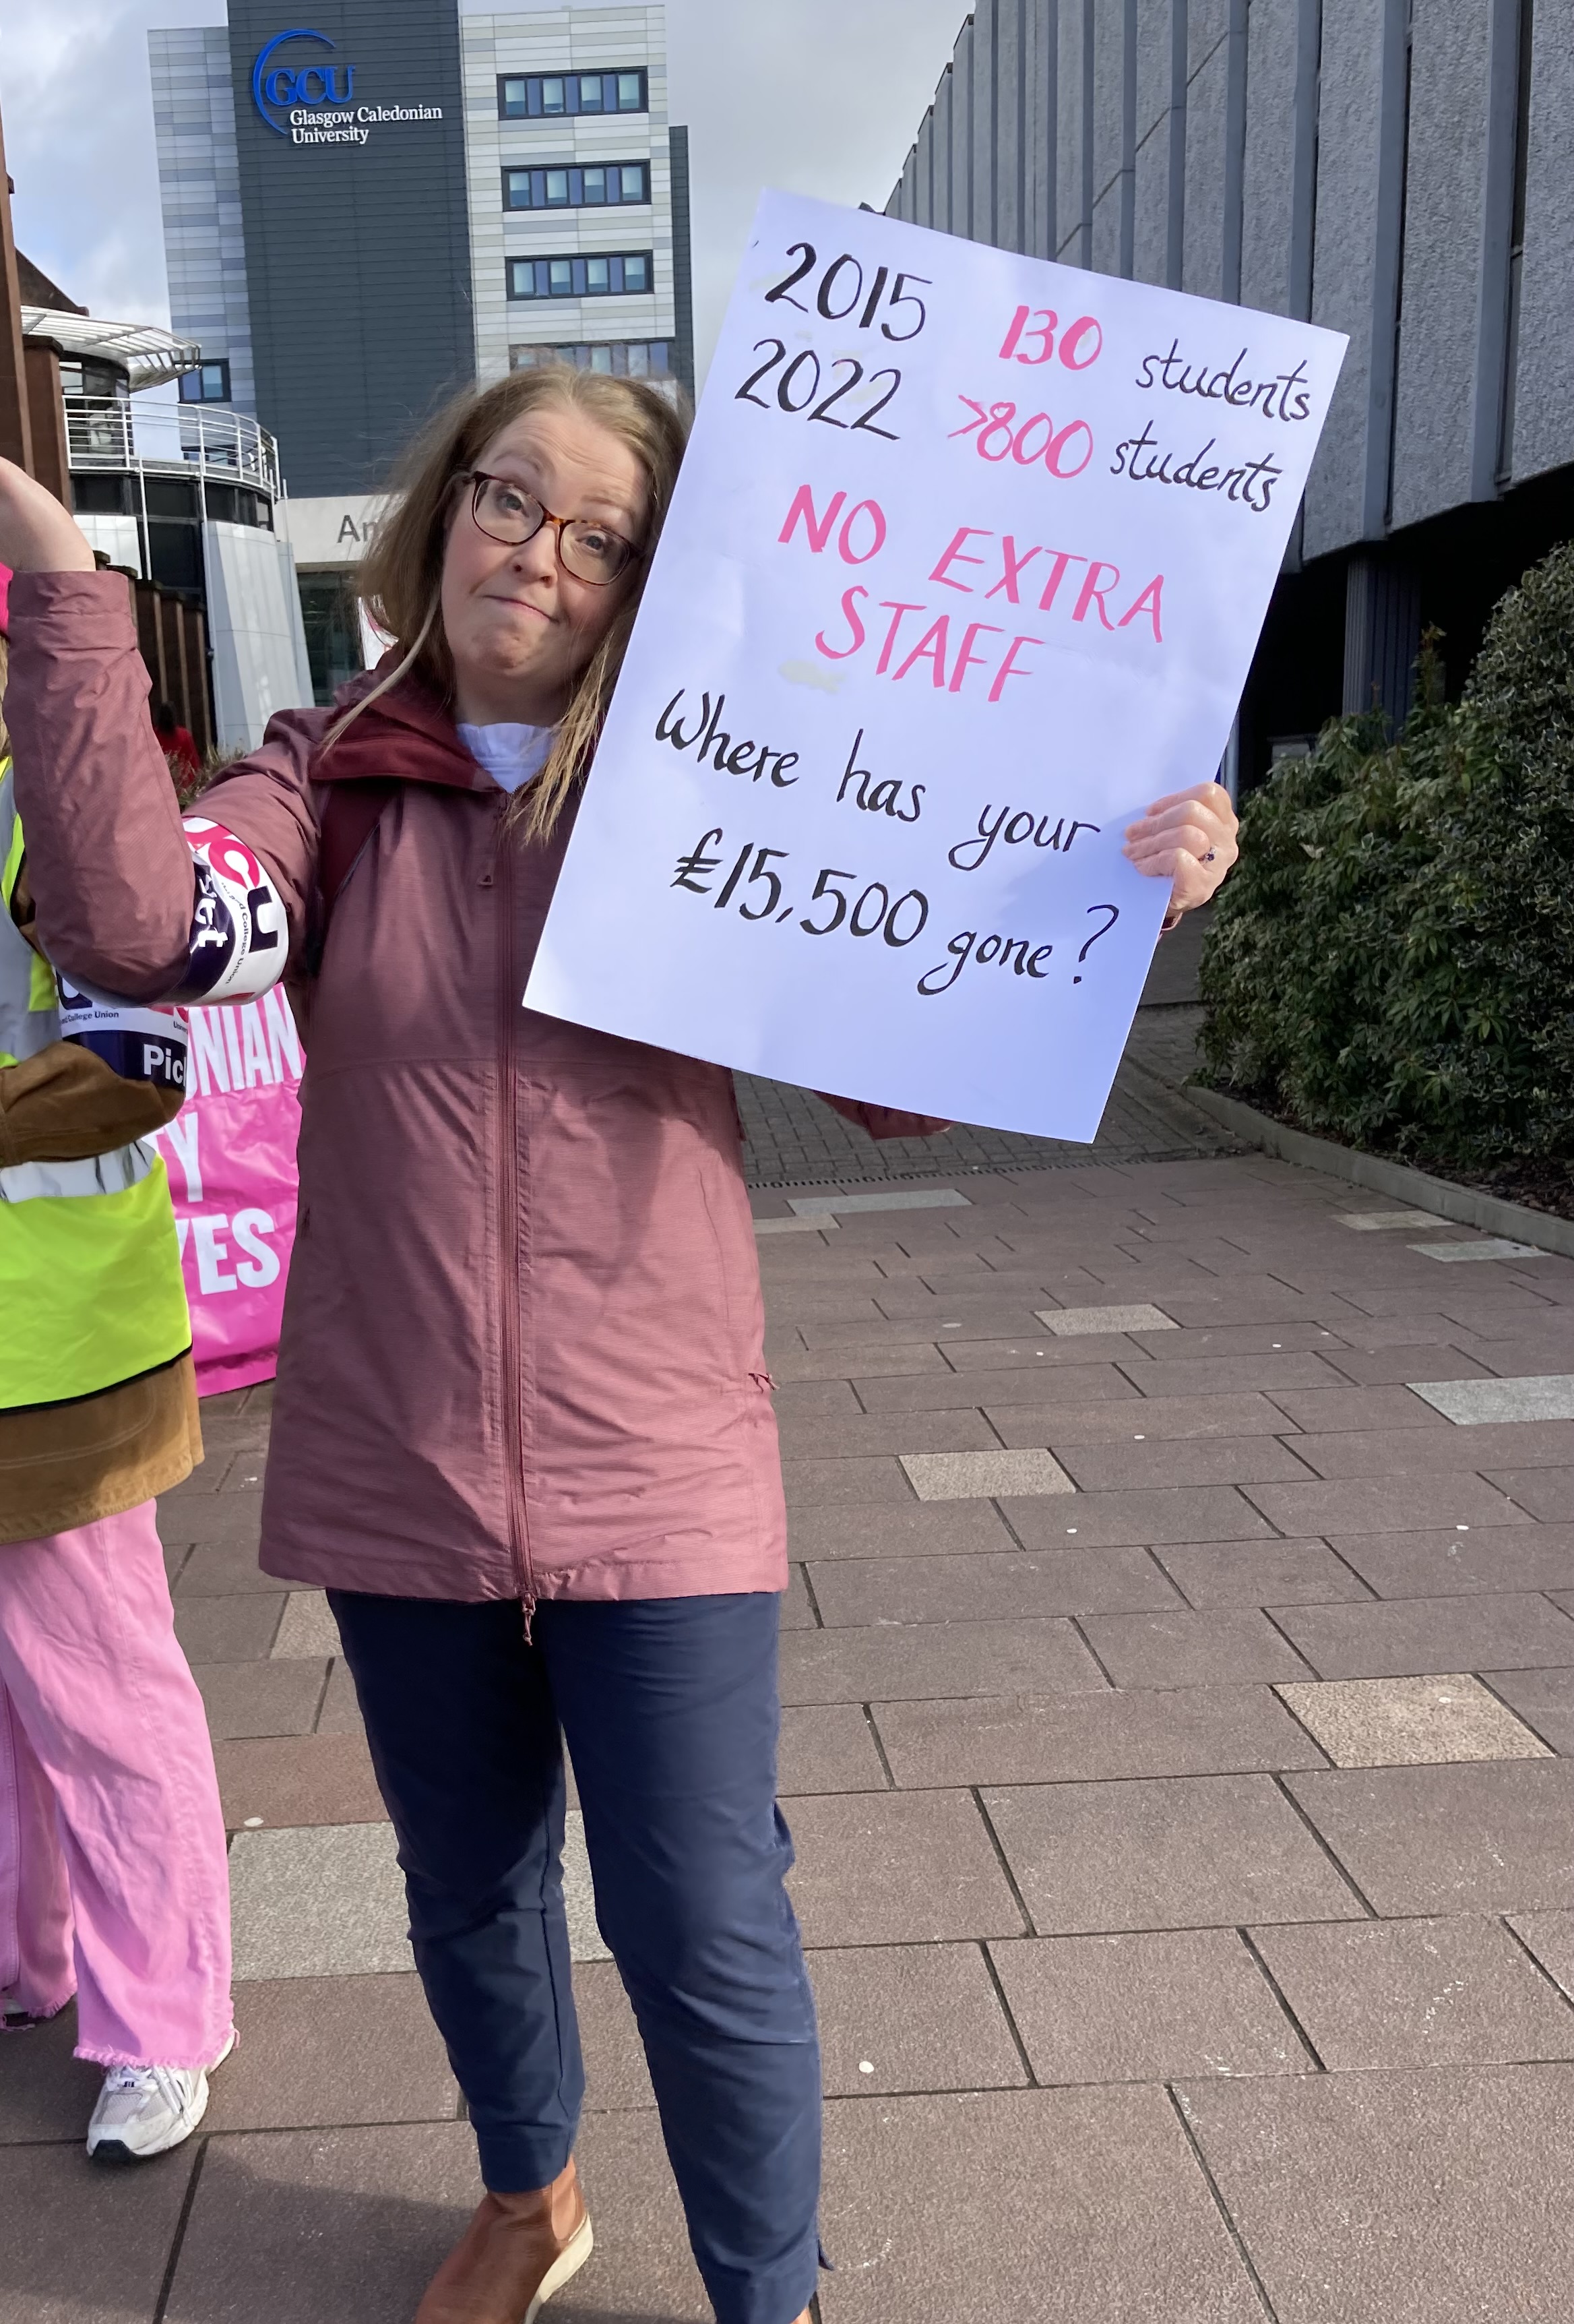 GCU
Glasgow Caledonian
University
2015 130 students
2022 >800 students
NO EXTRA
STAFF
Where has your
£15,500 gone?
College Union